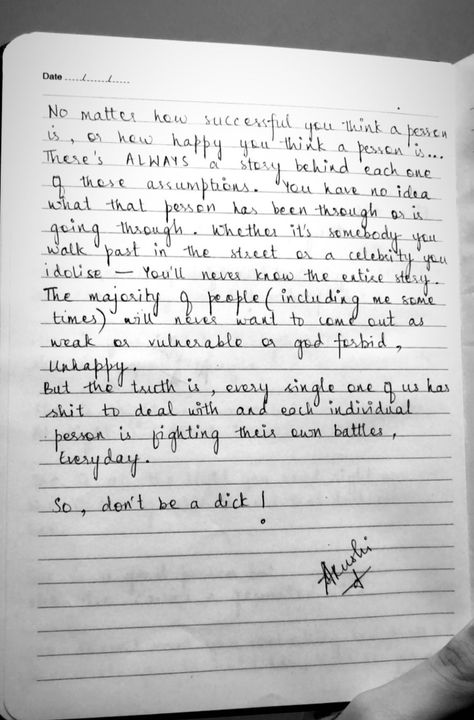 Date ...../....../......
No matter how successful you think a person
is, or how happy you think a person is...
There's ALWAYS a story behind each one
of those assumptions. You have no idea
what that person has been through or is
going through. Whether it's somebody you
walk past in the street or a celebrity you
idolise — You'll never know the entire story.
The majority of people (including me some
times) will never want to come out as
weak or vulnerable or god forbid,
unhappy.
But the truth is, every single one of us has
shit to deal with and each individual
person is fighting their own battles,
Everyday.
So, don't be a dick!